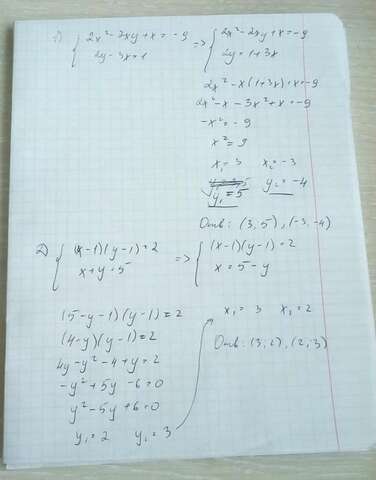 1) { 2x² - 2xy + x = -9 => { 2x² - 2xy + x = -9
2y - 3x = 1 2y = 1 + 3x
2x² - x(1+3x) + x = -9
2x² - x - 3x² + x = -9
-x² = -9
x² = 9
x₁ = 3 x₂ = -3
y₁ = 5 y₂ = -4
Отв: (3, 5), (-3, -4)
2) { (x-1)(y-1) = 2 => { (x-1)(y-1) = 2
x + y = 5 x = 5 - y
(5-y-1)(y-1) = 2
(4-y)(y-1) = 2
4y - y² - 4 + y = 2
-y² + 5y - 6 = 0
y² - 5y + 6 = 0
y₁ = 2 y₁ = 3
x₁ = 3 x₂ = 2
Отв: (3, 2), (2, 3)